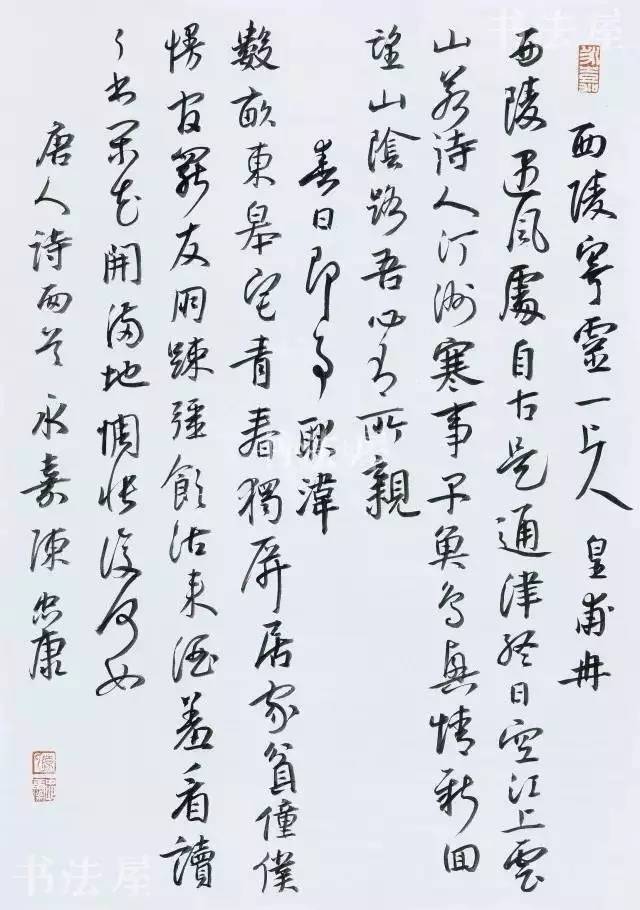 书法屋
西陵寄靈一上人 皇甫冉
西陵遇風處自古是通津終日空江上雲
山若待人汀洲寒事早魚鳥興情新回
望山陰路吾心有所親
春日即事 耿湋
數畝東皋宅青春獨屏居家貧僮僕
慢官罷友朋踈彊飲沽來酒羞看讀
了書閑花開滿地惆悵復何如
唐人詩兩首 永嘉陳忠康
书法屋